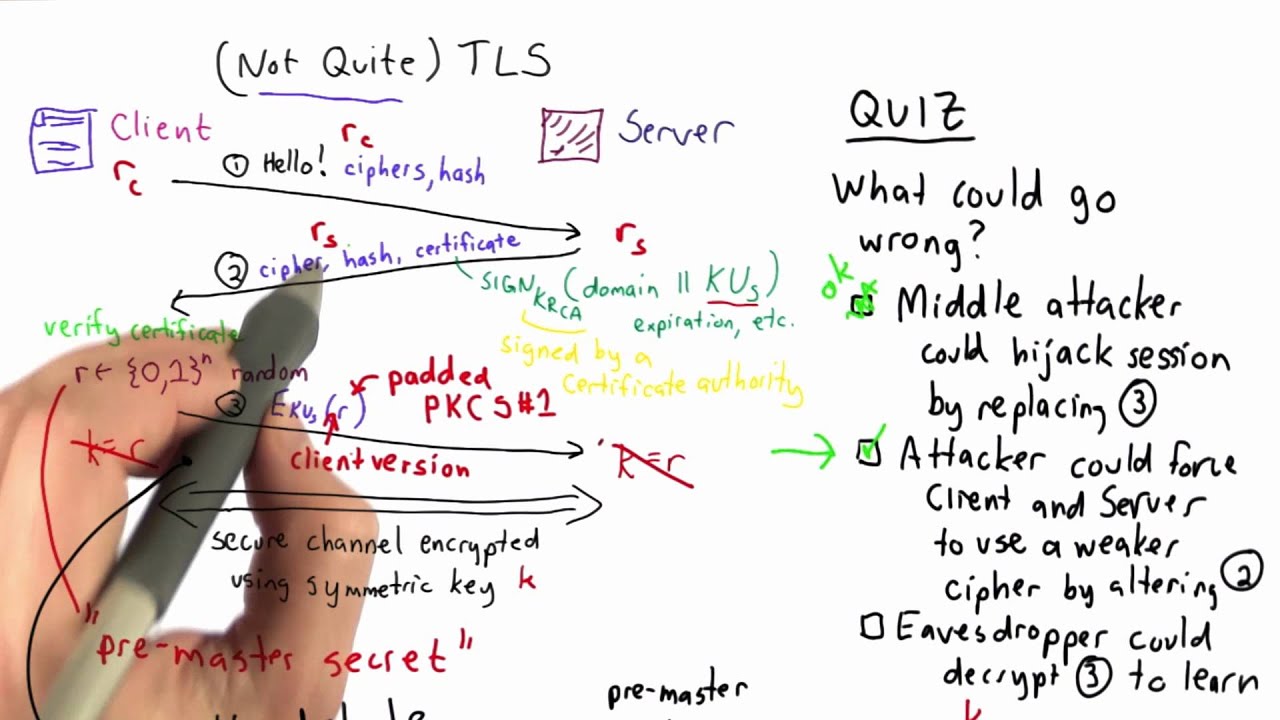 (Not Quite) TLS
Client
Server
r_c
r_c
① Hello! ciphers, hash
r_s
r_s
② cipher, hash, certificate
SIGN_KRCA (domain || KU_s)
expiration, etc.
signed by a
certificate authority
verify certificate
r ← {0,1}^n random
③ E_KUs(r)
padded
PKCS#1
client version
k = r
k = r
secure channel encrypted
using symmetric key k
"pre-master secret"
pre-master
QUIZ
What could go
wrong?
ok
Middle attacker
could hijack session
by replacing ③
Attacker could force
Client and Server
to use a weaker
cipher by altering ②
Eavesdropper could
decrypt ③ to learn
k